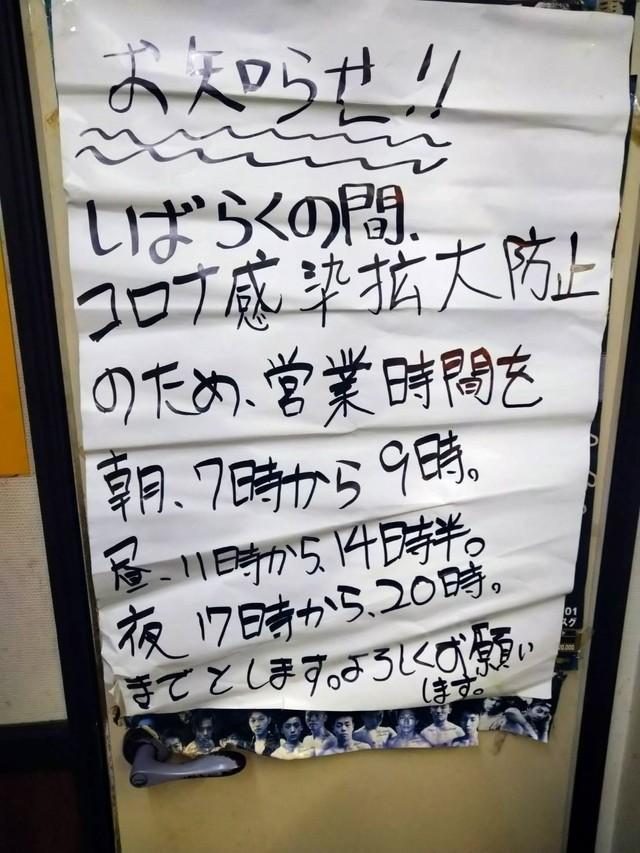 お知らせ!!
いばらくの間、
コロナ感染拡大防止
のため、営業時間を
朝、7時から9時。
昼、11時から、14時半。
夜 17時から、20時。
までとします。よろしくお願い
します。
01
スグ